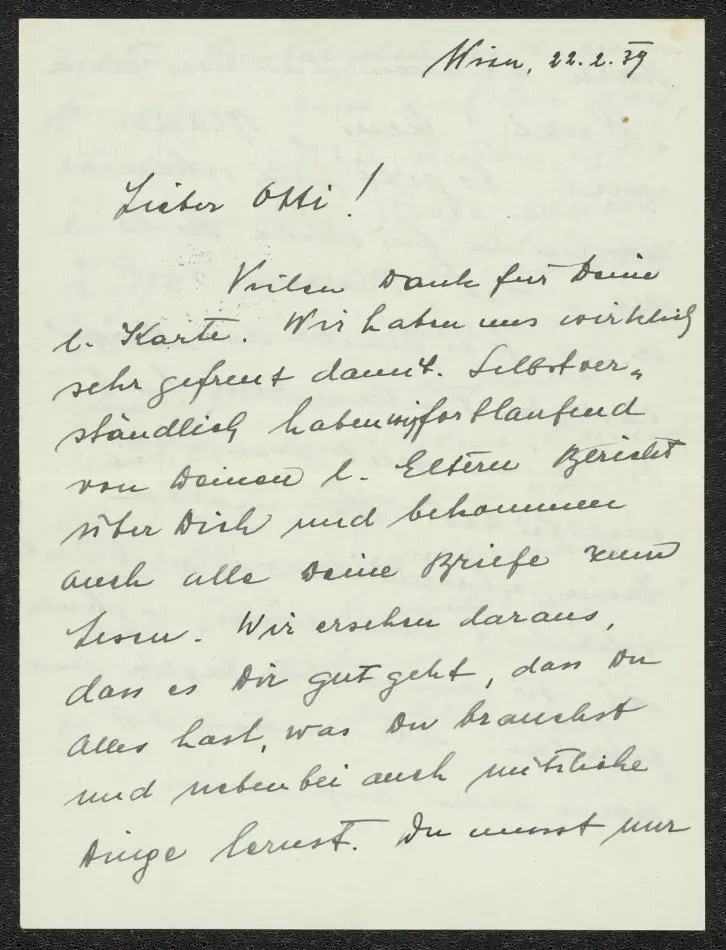 Wien, 22.2.39
Lieber Otti!
Vielen Dank für Deine
l. Karte. Wir haben uns wirklich
sehr gefreut damit. Selbstver-
ständlich haben wir fortlaufend
von Deinen l. Eltern Bericht
über Dich und bekommen
auch alle Deine Briefe zum
Lesen. Wir ersehen daraus,
dass es Dir gut geht, dass Du
Alles hast, was Du brauchst
und nebenbei auch nützliche
Dinge lernst. Du musst nur